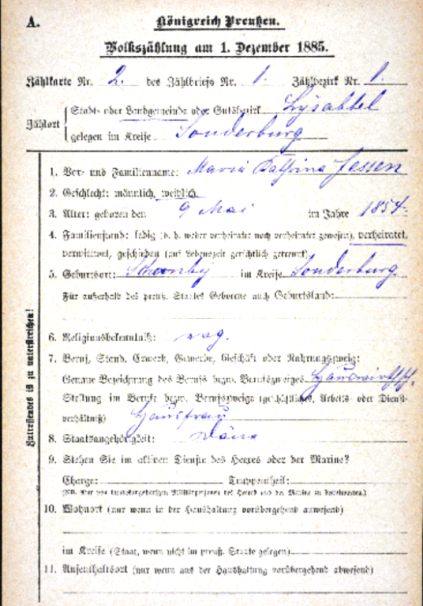 A.
Königreich Preußen.
Volkszählung am 1. Dezember 1885.
Zählkarte Nr. 2. des Zählbriefs Nr. 1. Zählbezirk Nr. 1.
Zählort
Stadt- oder Landgemeinde oder Gutsbezirk Lysabbel
gelegen im Kreise Sonderburg
1. Vor- und Familienname: Maria Cathrina Jessen
2. Geschlecht: männlich, weiblich.
3. Alter: geboren den 9 Mai im Jahre 1854.
4. Familienstand: ledig (d. h. weder verheiratet noch verheiratet gewesen), verheiratet,
verwittwet, geschieden (auf Lebenszeit gerichtlich getrennt).
5. Geburtsort: im Kreise Sonderburg
Für außerhalb des preuß. Staates Geborene auch Geburtsland:
6. Religionsbekenntniß: evg.
7. Beruf, Stand, Erwerb, Gewerbe, Geschäft oder Nahrungszweig:
Genaue Bezeichnung des Berufs bezw. Berufszweiges
Stellung im Berufe bezw. Berufszweige (geschäftliches, Arbeits- oder Dienst-
verhältniß) Hausfrau
8. Staatsangehörigkeit: Däne
9. Stehen Sie im aktiven Dienste des Heeres oder der Marine?
Charge: Truppentheil:
10. Wohnort (nur wenn in der Haushaltung vorübergehend anwesend)
im Kreise (Staat, wenn nicht im preuß. Staate gelegen)
11. Aufenthaltsort (nur wenn aus der Haushaltung vorübergehend abwesend)
Zutreffendes ist zu unterstreichen!